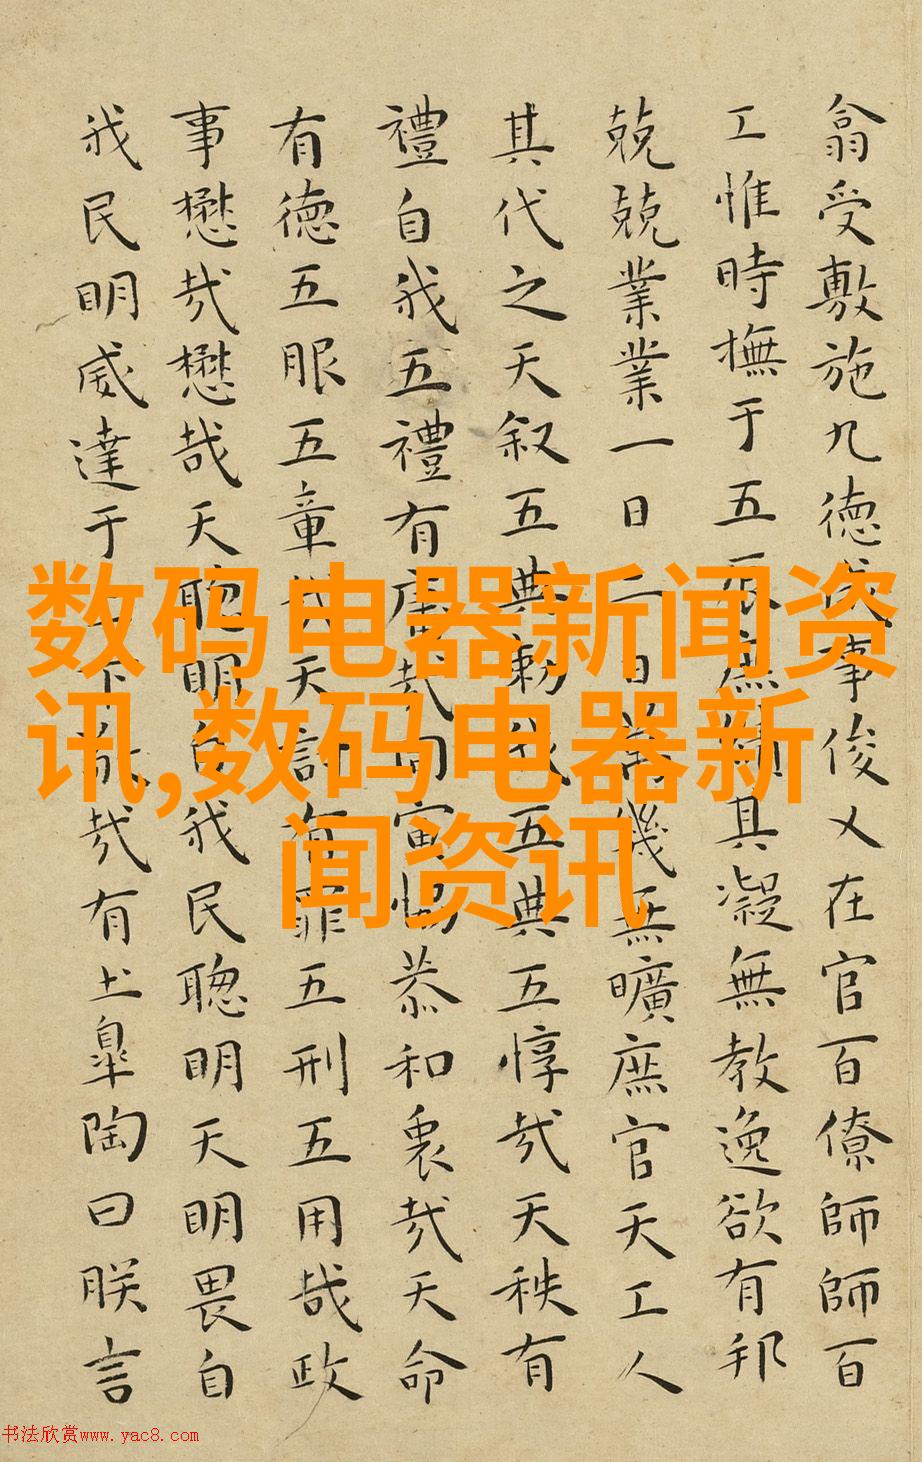 翕受敷施九德咸事俊乂在官百僚師師百
工惟時撫于五辰庶績其凝無教逸欲有邦
兢兢業業一日二日萬幾无曠庶官天工人
其代之天叙五典勅我五典五惇哉天秩有
禮自我五禮有庸哉同寅協恭和衷哉天命
有德五服五章哉天討有罪五刑五用哉政
事懋哉懋哉天聰明自我民聰明天明畏自
我民明威達于上下敬哉有土皐陶曰朕言
数码电器新闻资
讯,数码电器新
闻资讯
书法欣赏www.yac8.com